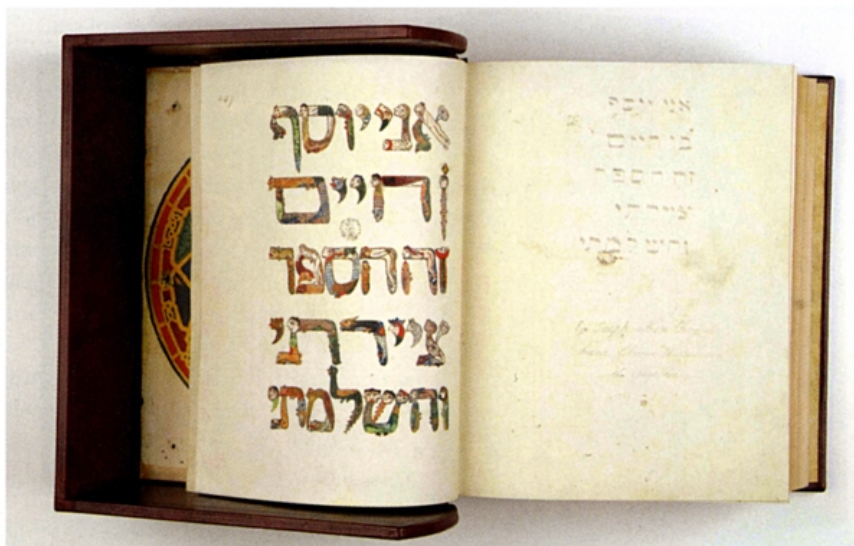 אני יוסף
בן חיים
זה הספר
ציירתי
והשלמתי
אני יוסף
ן חיים
זה הספר
ציירתי
והשלמתי